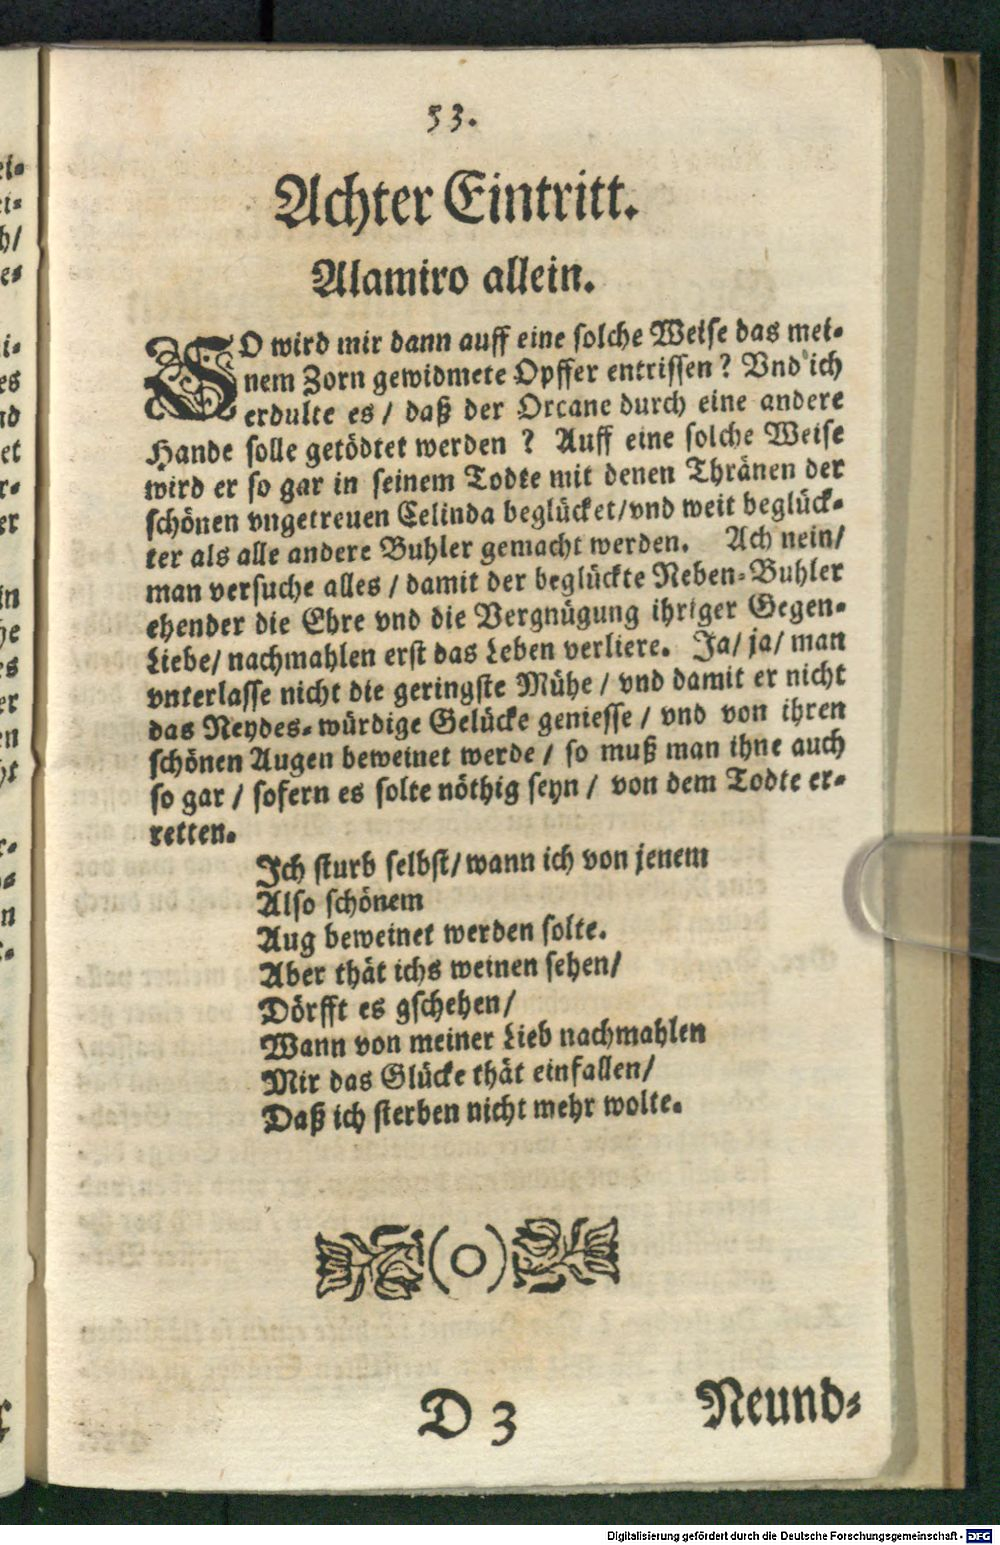 53.
Achter Eintritt.
Alamiro allein.
SO wird mir dann auff eine solche Weise das mei-
nem Zorn gewidmete Opffer entrissen? Vnd ich
erdulte es / daß der Orcane durch eine andere
Hande solle getödtet werden ? Auff eine solche Weise
wird er so gar in seinem Todte mit denen Thränen der
schönen vngetreuen Celinda beglücket/vnd weit beglück-
ter als alle andere Buhler gemacht werden. Ach nein/
man versuche alles / damit der beglückte Neben-Buhler
ehender die Ehre vnd die Vergnügung ihriger Gegen-
Liebe/ nachmahlen erst das Leben verliere. Ja/ ja/ man
vnterlasse nicht die geringste Mühe / vnd damit er nicht
das Neydes-würdige Gelücke geniesse / vnd von ihren
schönen Augen beweinet werde / so muß man ihne auch
so gar / sofern es solte nöthig seyn / von dem Todte er-
retten.
Ich sturb selbst/ wann ich von jenem
Also schönem
Aug beweinet werden solte.
Aber thät ichs weinen sehen/
Dörfft es gschehen/
Wann von meiner Lieb nachmahlen
Mir das Glücke thät einfallen/
Daß ich sterben nicht mehr wolte.
(O)
D 3
Neund-
Digitalisierung gefördert durch die Deutsche Forschungsgemeinschaft - DFG